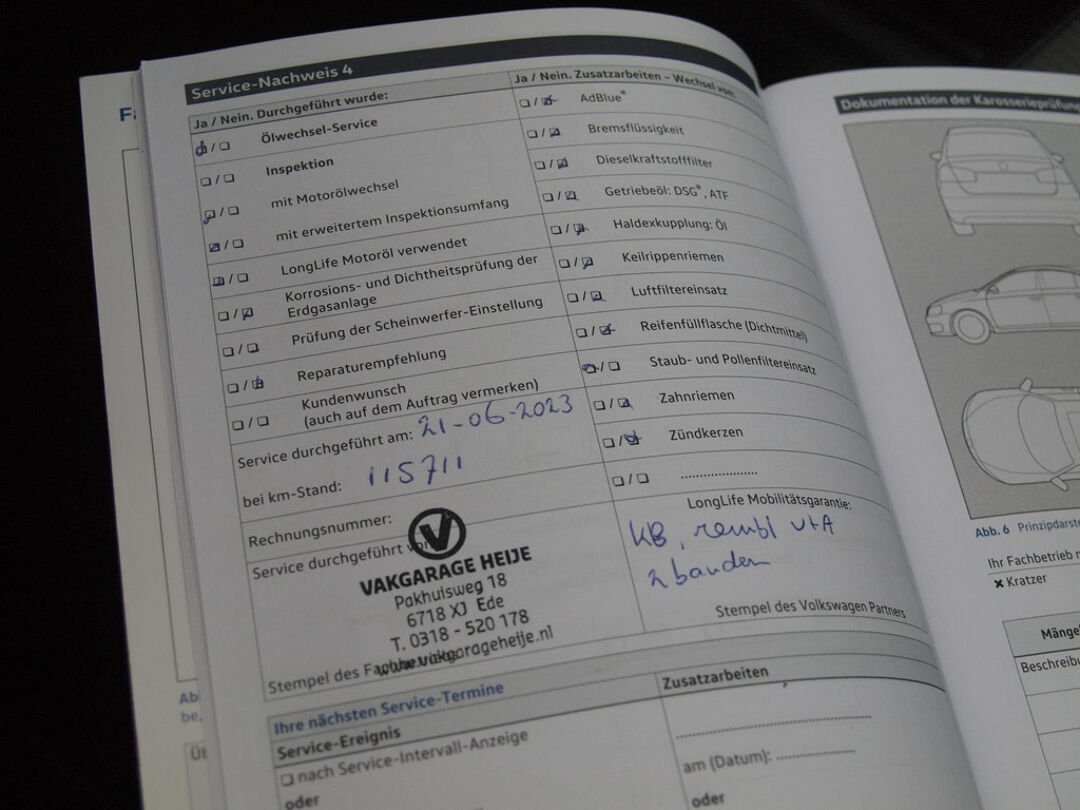 Service-Nachweis 4
Ja / Nein. Durchgeführt wurde:
Ölwechsel-Service
Inspektion
mit Motorölwechsel
mit erweitertem Inspektionsumfang
LongLife Motoröl verwendet
Korrosions- und Dichtheitsprüfung der
Erdgasanlage
Prüfung der Scheinwerfer-Einstellung
Reparaturempfehlung
Kundenwunsch
(auch auf dem Auftrag vermerken)
Service durchgeführt am: 21-06-2023
bei km-Stand: 115711
Rechnungsnummer:
Service durchgeführt von
VAKGARAGE HEIJE
Pakhuisweg 18
6718 XJ Ede
T. 0318 - 520 178
www.vakgarageheije.nl
Stempel des
Ja / Nein. Zusatzarbeiten – Wechsel von:
AdBlue®
Bremsflüssigkeit
Dieselkraftstofffilter
Getriebeöl: DSG®, ATF
Haldexkupplung: Öl
Keilrippenriemen
Luftfiltereinsatz
Reifenfüllflasche (Dichtmittel)
Staub- und Pollenfiltereinsatz
Zahnriemen
Zündkerzen
LongLife Mobilitätsgarantie:
KB, rembl V+A
2 banden
Stempel des Volkswagen Partners
Ihre nächsten Service-Termine
Service-Ereignis
nach Service-Intervall-Anzeige
oder
Zusatzarbeiten
am (Datum):
oder
Dokumentation der Karosserieprüfung
Abb. 6 Prinzipdarste
Ihr Fachbetrieb m
✖ Kratzer
Mängel
Beschreibu
Ab
be,
Üt